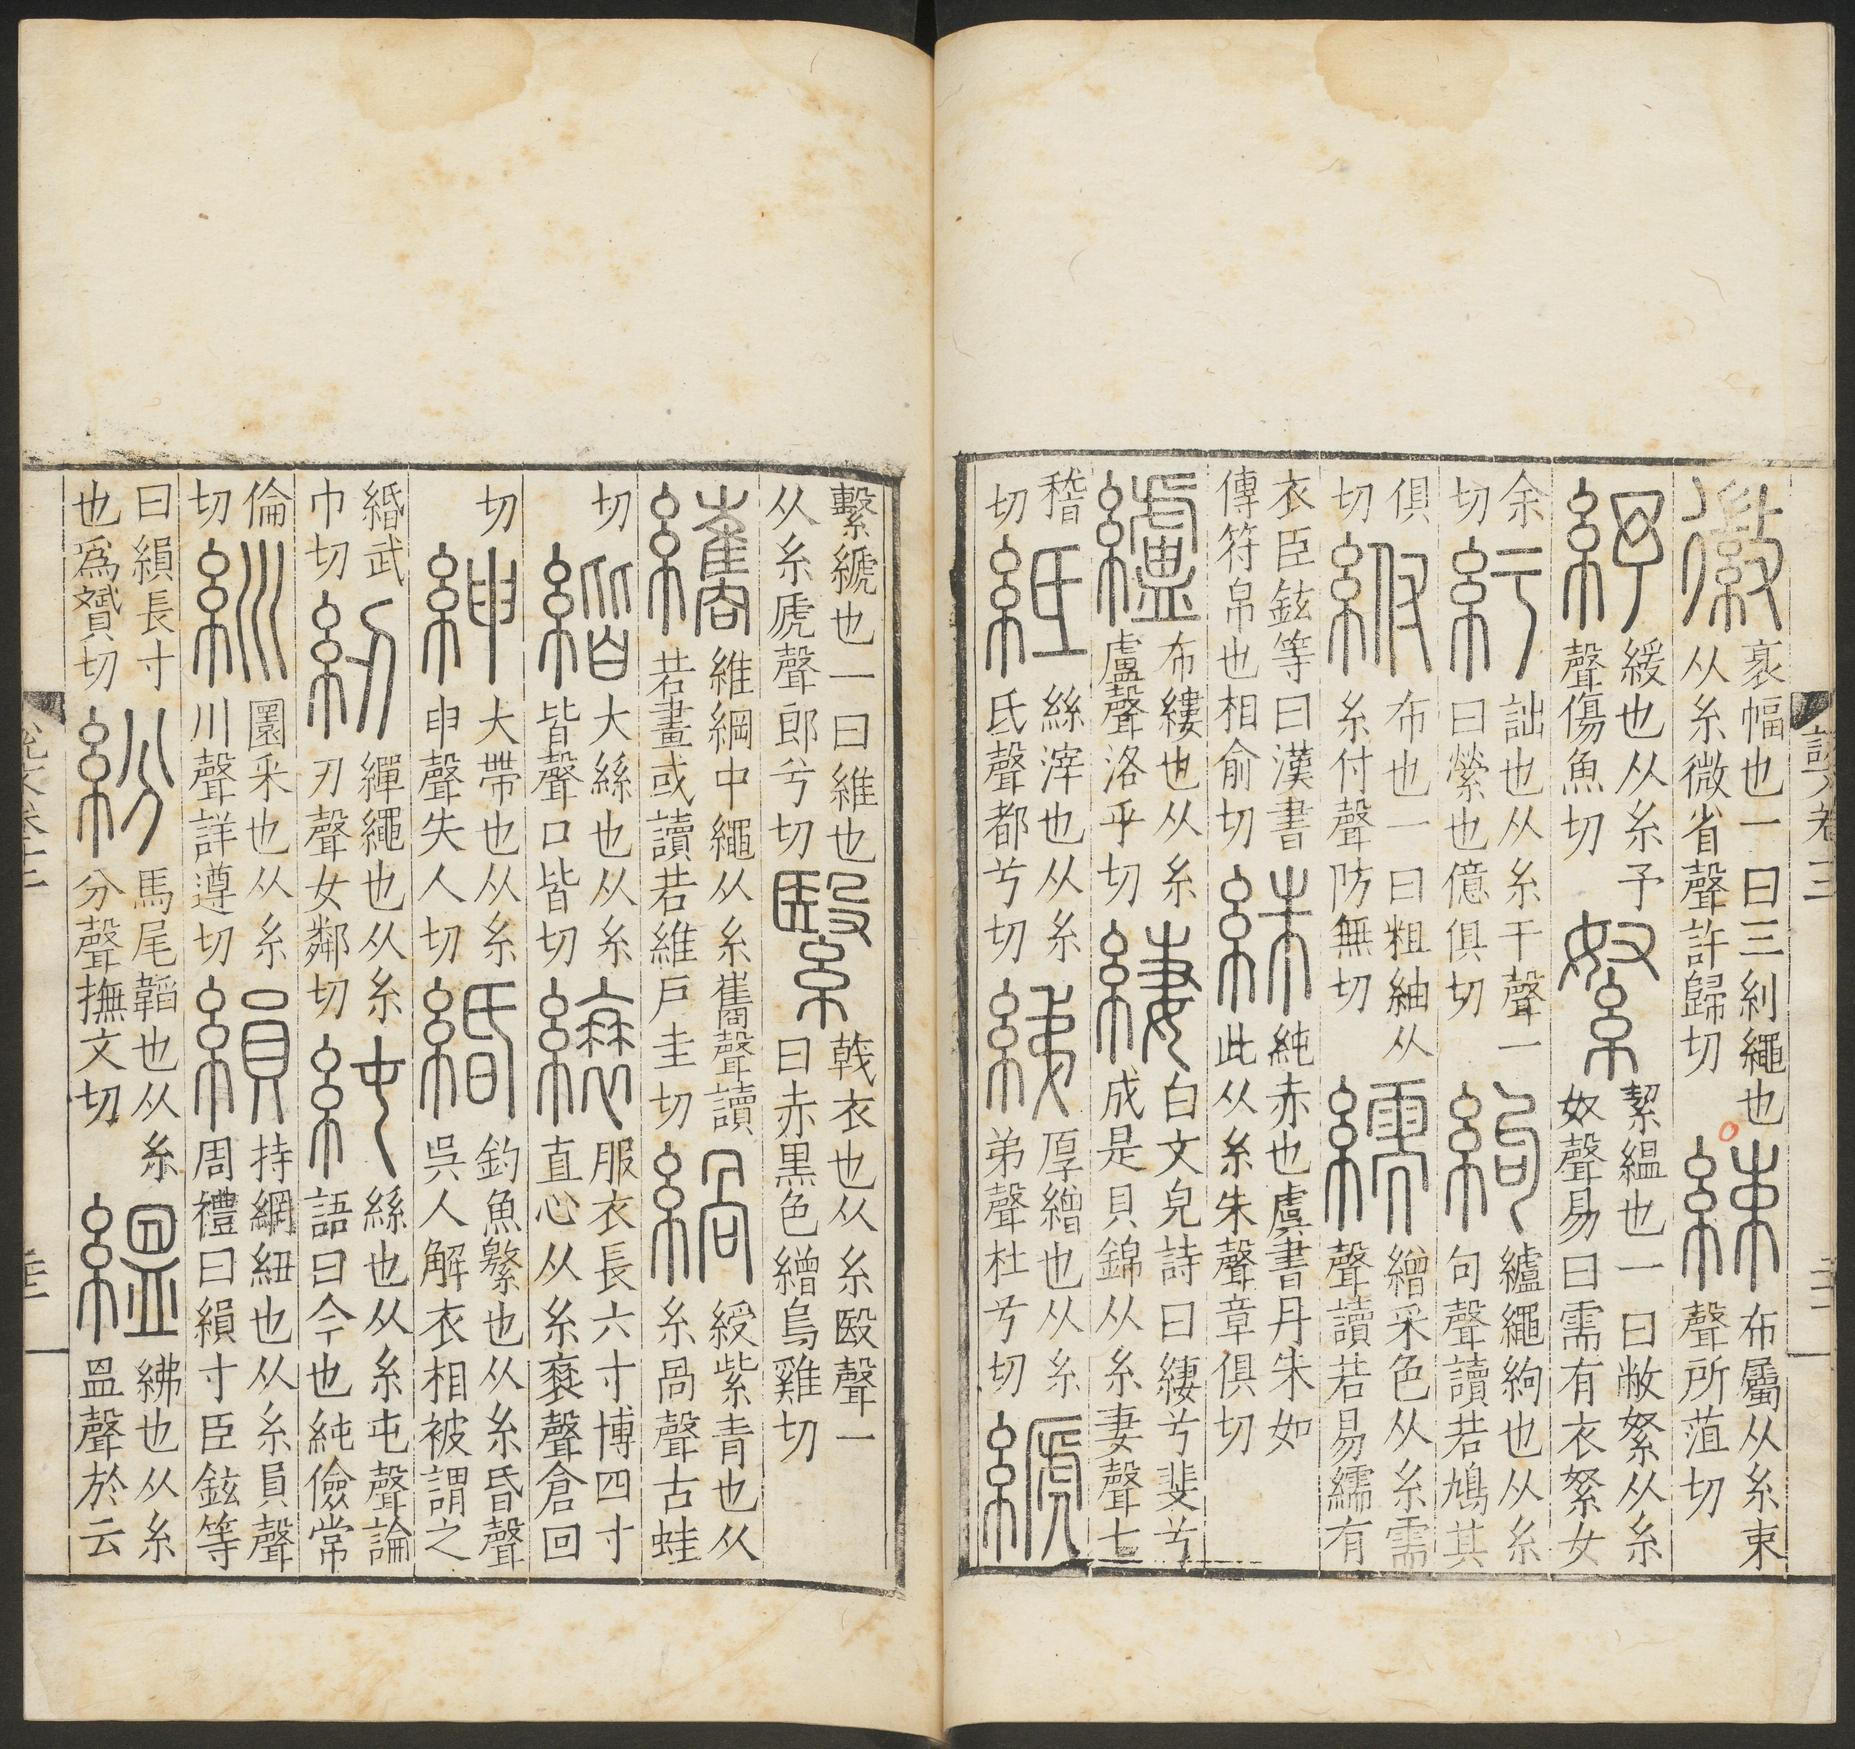 徽衺幅也一曰三糾繩也从糸微省聲許歸切綀布屬从糸束聲所菹切
紓緩也从糸予聲傷魚切絮絜緼也一曰敝絮从糸奴聲易曰需有衣絮女
余切紆詘也从糸于聲一曰縈也億俱切絇纑繩絇也从糸句聲讀若鳩其
俱切紨布也一曰粗紬从糸付聲防無切繻繒采色从糸需聲讀若易繻有
衣臣鉉等曰漢書傳符帛也相俞切絑純赤也虞書丹朱如此从糸朱聲章俱切
纑布縷也从糸盧聲洛乎切緀白文皃詩曰緀兮斐兮成是貝錦从糸妻聲七
稽切紙絲滓也从糸氐聲都兮切綈厚繒也从糸弟聲杜兮切䚦
繫䚦也一曰維也从糸虒聲郎兮切繄㦸衣也从糸殹聲一曰赤黑色繒烏雞切
纗維綱中繩从糸巂聲讀若畫或讀若維戶圭切緺綬紫青也从糸咼聲古蛙
切緒大絲也从糸皆聲口皆切縗服衣長六寸博四寸直心从糸衰聲倉回
切紳大帶也从糸申聲失人切緡釣魚繁也从糸昏聲吳人解衣相被謂之
緡武巾切紉繟繩也从糸刃聲女鄰切純絲也从糸屯聲論語曰今也純儉常
倫切紃圜采也从糸川聲詳遵切縜持綱紐也从糸員聲周禮曰縜寸臣鉉等
曰縜長寸也爲贇切紛馬尾韜也从糸分聲撫文切緼紼也从糸𥁕聲於云